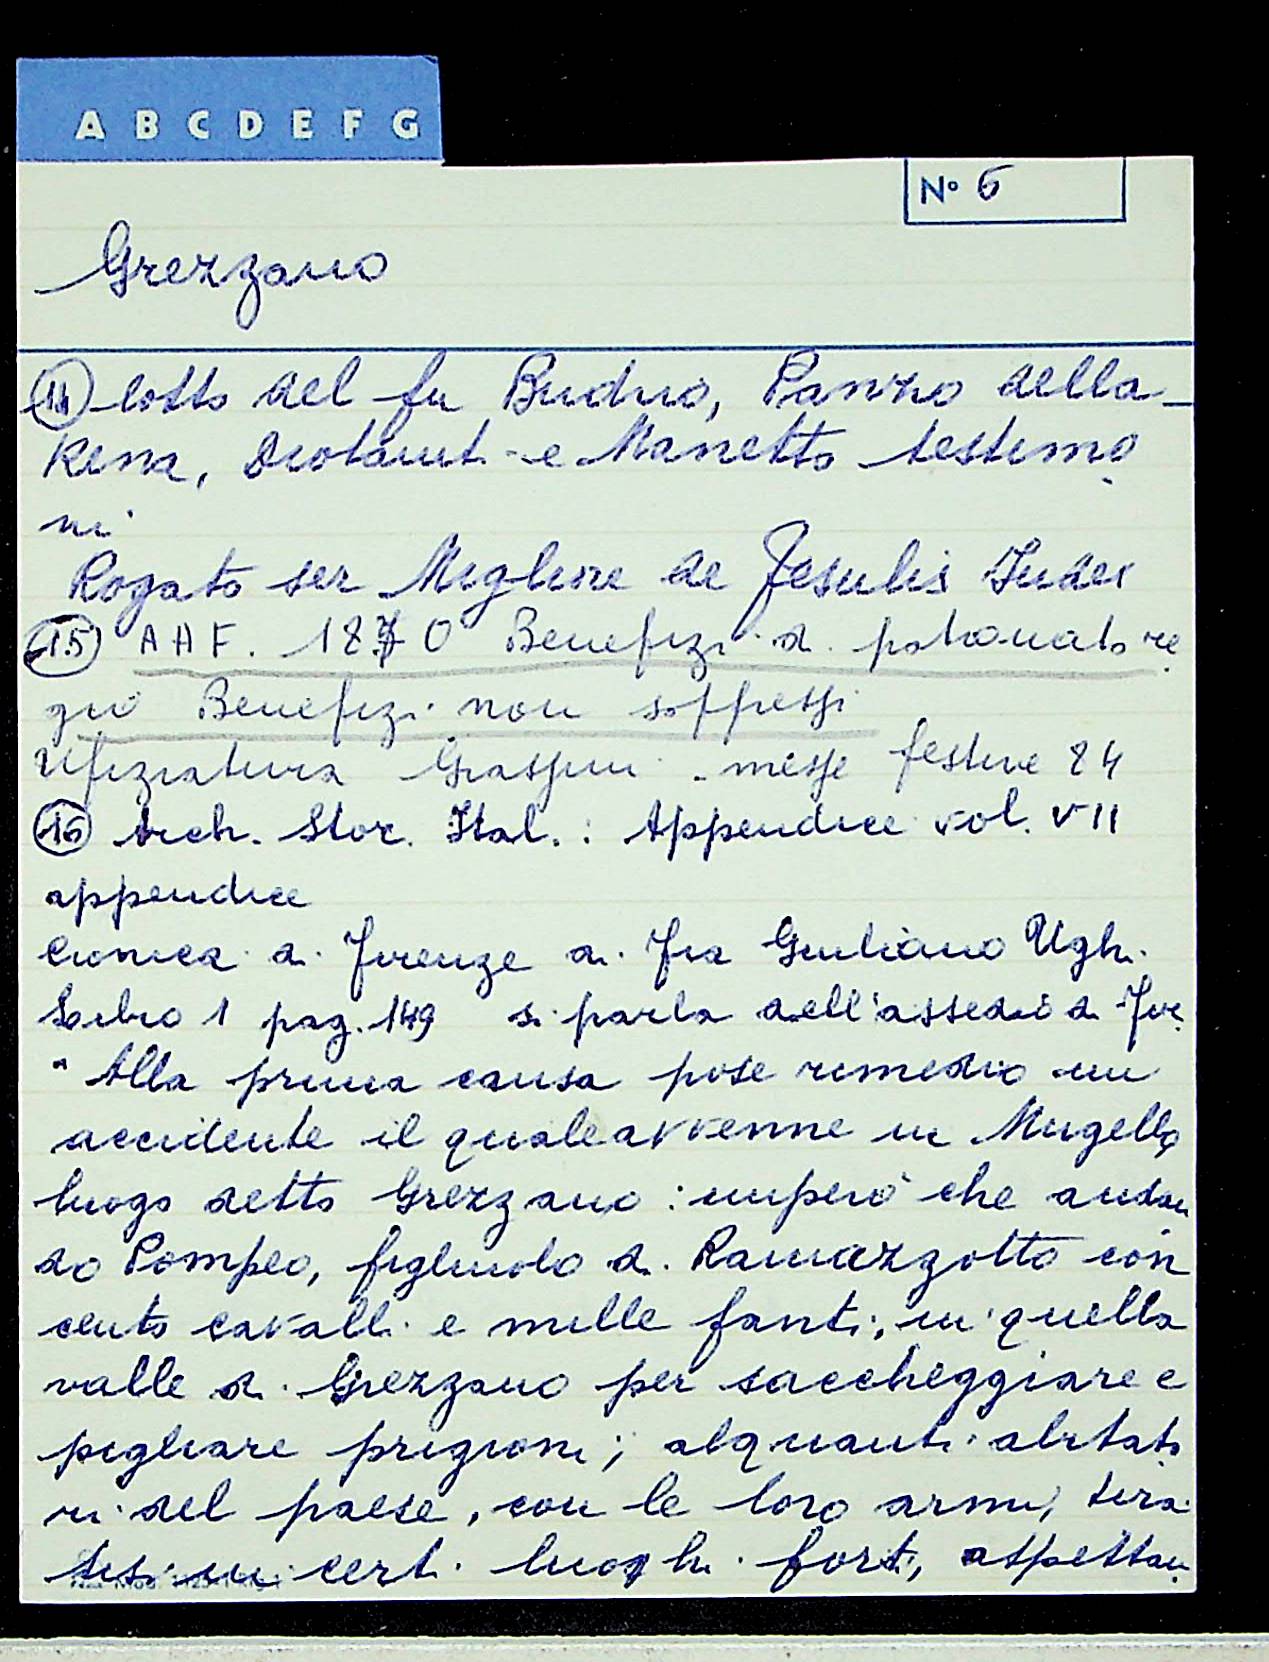 A B C D E F G
Nº 6
Grezzano
lotto del fu Buduo, Panzo della-
Rena, Diotaiut. e Manetto testimo
ni
Rogato ser Migliore de Fesulis Iudex
15 AAF. 1870 Benefizi di patronato re
gio Benefizi non soppressi
Ufiziatura Graspini - messe festive 24
16 Arch. Stor. Ital.: Appendice vol. VII
appendice
Cronica di Firenze di Fra Giuliano Ughi.
Libro 1 pag. 149 si parla dell'assedio di Fir.
" Alla prima causa pose rimedio un
accidente il quale avvenne in Mugello,
luogo detto Grezzano: imperò che andan
do Pompeo, figliuolo di Ramazzotto con
cento cavalli e mille fanti, in quella
valle di Grezzano per saccheggiare e
pigliare prigioni; alquanti abitato
ri del paese, con le loro armi, tira
tisi in certi luoghi forti, aspettan